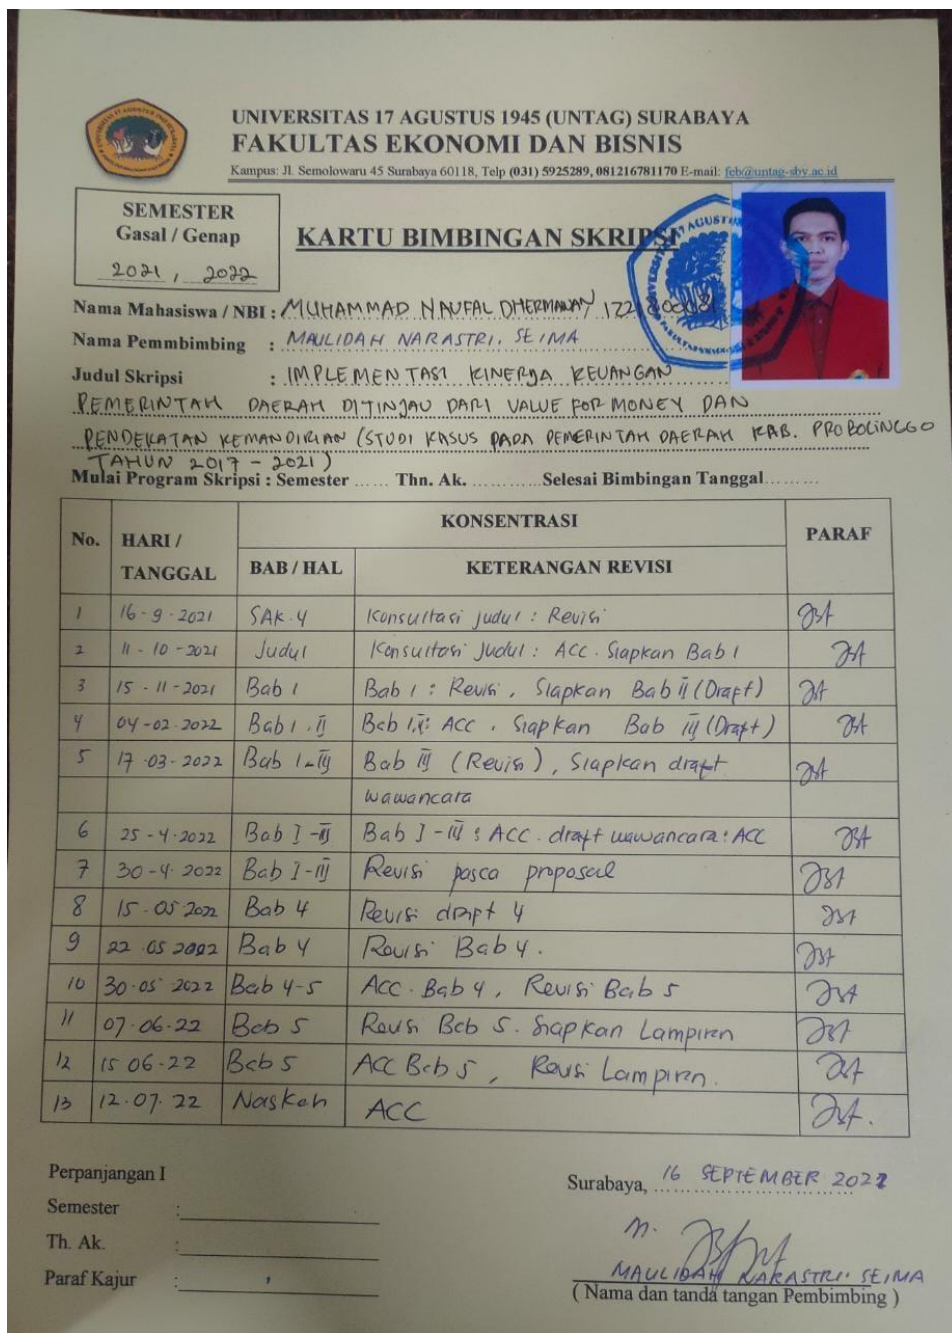 UNIVERSITAS 17 AGUSTUS 1945 (UNTAG) SURABAYA
FAKULTAS EKONOMI DAN BISNIS
Kampus: Jl. Semolowaru 45 Surabaya 60118, Telp (031) 5925289, 081216781170 E-mail: feb@untag-sby.ac.id
SEMESTER
Gasal / Genap
2021, 2022
KARTU BIMBINGAN SKRIPSI
Nama Mahasiswa / NBI : MUHAMMAD NAUFAL DHERMAWAN /
Nama Pemmbimbing : MAULIDAH NARASTRI, SE, MA
Judul Skripsi : IMPLEMENTASI KINERJA KEUANGAN
PEMERINTAH DAERAH DITINJAU DARI VALUE FOR MONEY DAN
PENDEKATAN KEMANDIRIAN (STUDI KASUS PADA PEMERINTAH DAERAH KAB. PROBOLINGGO
TAHUN 2017 - 2021)
Mulai Program Skripsi : Semester ...... Thn. Ak. ............Selesai Bimbingan Tanggal.........
No. HARI / TANGGAL KONSENTRASI PARAF
BAB / HAL KETERANGAN REVISI
1 16-9-2021 Konsultasi judul : Revisi
2 11-10-2021 Judul Konsultasi Judul : ACC. Siapkan Bab 1
3 15-11-2021 Bab 1 Bab 1 : Revisi, Siapkan Bab II (Draft)
4 04-02-2022 Bab I.II Bab I.II: ACC. Siapkan Bab III (Draft)
5 17-03-2022 Bab I-III Bab III (Revisi), Siapkan draft
wawancara
6 25-4-2022 Bab I-III Bab I-III : ACC. draft wawancara: ACC
7 30-4-2022 Bab I-III Revisi pasca proposal
8 15-05-2022 Bab 4 Revisi draft 4
9 22 05 2022 Bab 4 Revisi Bab 4.
10 30-05-2022 Bab 4-5 ACC. Bab 4, Revisi Bab 5
11 07-06-22 Bab 5 Revisi Bab 5. Siapkan Lampiran
12 15 06-22 Bab 5 ACC Bab 5, Revisi Lampiran.
13 12.07.22 Naskah ACC
Perpanjangan I
Semester :
Th. Ak. :
Paraf Kajur :
Surabaya, 16 SEPTEMBER 2022
MAULIDAH NARASTRI, SE, MA
( Nama dan tanda tangan Pembimbing )